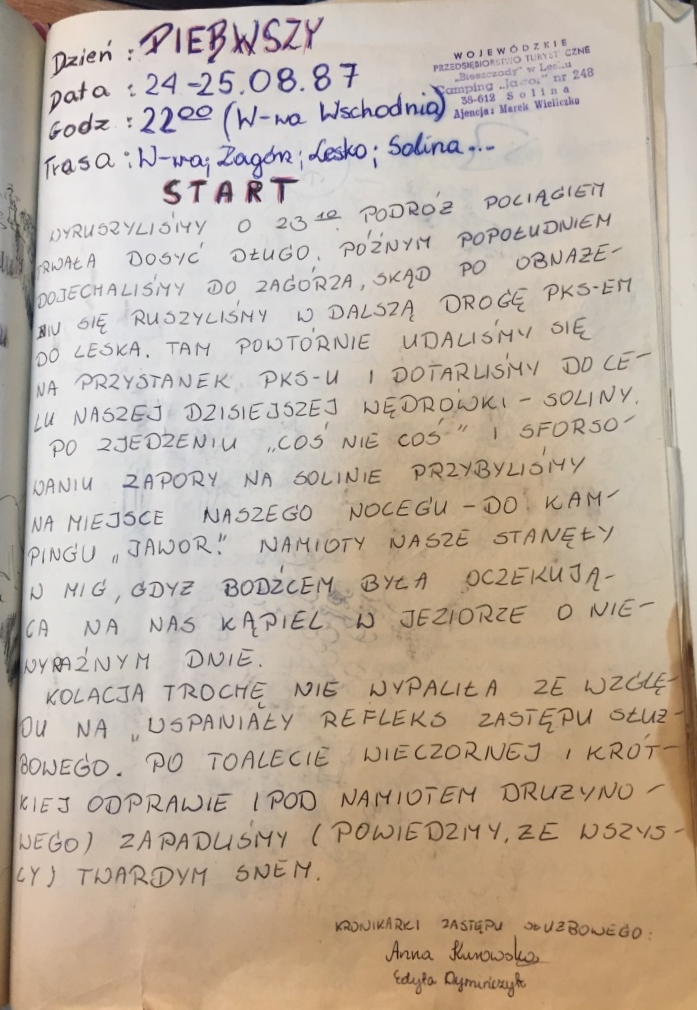 Dzień : PIERWSZY
Data : 24-25.08.87
Godz : 22⁰⁰ (W-wa Wschodnia)
Trasa : W-wa; Zagórz; Lesko; Solina...
WOJEWÓDZKIE
PRZEDSIĘBIORSTWO TURYSTYCZNE
„Bieszczady” w Lesku
Camping „Jawor” nr 248
38-612 Solina
Ajencja: Marek Wieliczko
START
WYRUSZYLIŚMY O 23¹⁰. PODRÓŻ POCIĄGIEM
TRWAŁA DOSYĆ DŁUGO. PÓŹNYM POPOŁUDNIEM
DOJECHALIŚMY DO ZAGÓRZA, SKĄD PO OBNAŻE-
NIU SIĘ RUSZYLIŚMY W DALSZĄ DROGĘ PKS-EM
DO LESKA. TAM POWTÓRNIE UDALIŚMY SIĘ
NA PRZYSTANEK PKS-U I DOTARLIŚMY DO CE-
LU NASZEJ DZISIEJSZEJ WĘDRÓWKI - SOLINY.
PO ZJEDZENIU „COŚ NIE COŚ” I SFORSO-
WANIU ZAPORY NA SOLINIE PRZYBYLIŚMY
NA MIEJSCE NASZEGO NOCEGU - DO KAM-
PINGU „JAWOR.” NAMIOTY NASZE STANĘŁY
W MIG, GDYŻ BODŹCEM BYŁA OCZEKUJĄ-
CA NA NAS KĄPIEL W JEZIORZE O NIE-
WYRAŹNYM DNIE.
KOLACJA TROCHĘ NIE WYPALIŁA ZE WZGLĘ-
DU NA „WSPANIAŁY REFLEKS ZASTĘPU SŁUŻ-
BOWEGO. PO TOALECIE WIECZORNEJ I KRÓT-
KIEJ ODPRAWIE (POD NAMIOTEM DRUŻYNO-
WEGO) ZAPADLIŚMY (POWIEDZMY, ŻE WSZYS-
CY) TWARDYM SNEM.
KRONIKARKI ZASTĘPU SŁUŻBOWEGO:
Anna Kurowska
Edyta Dymińczyk